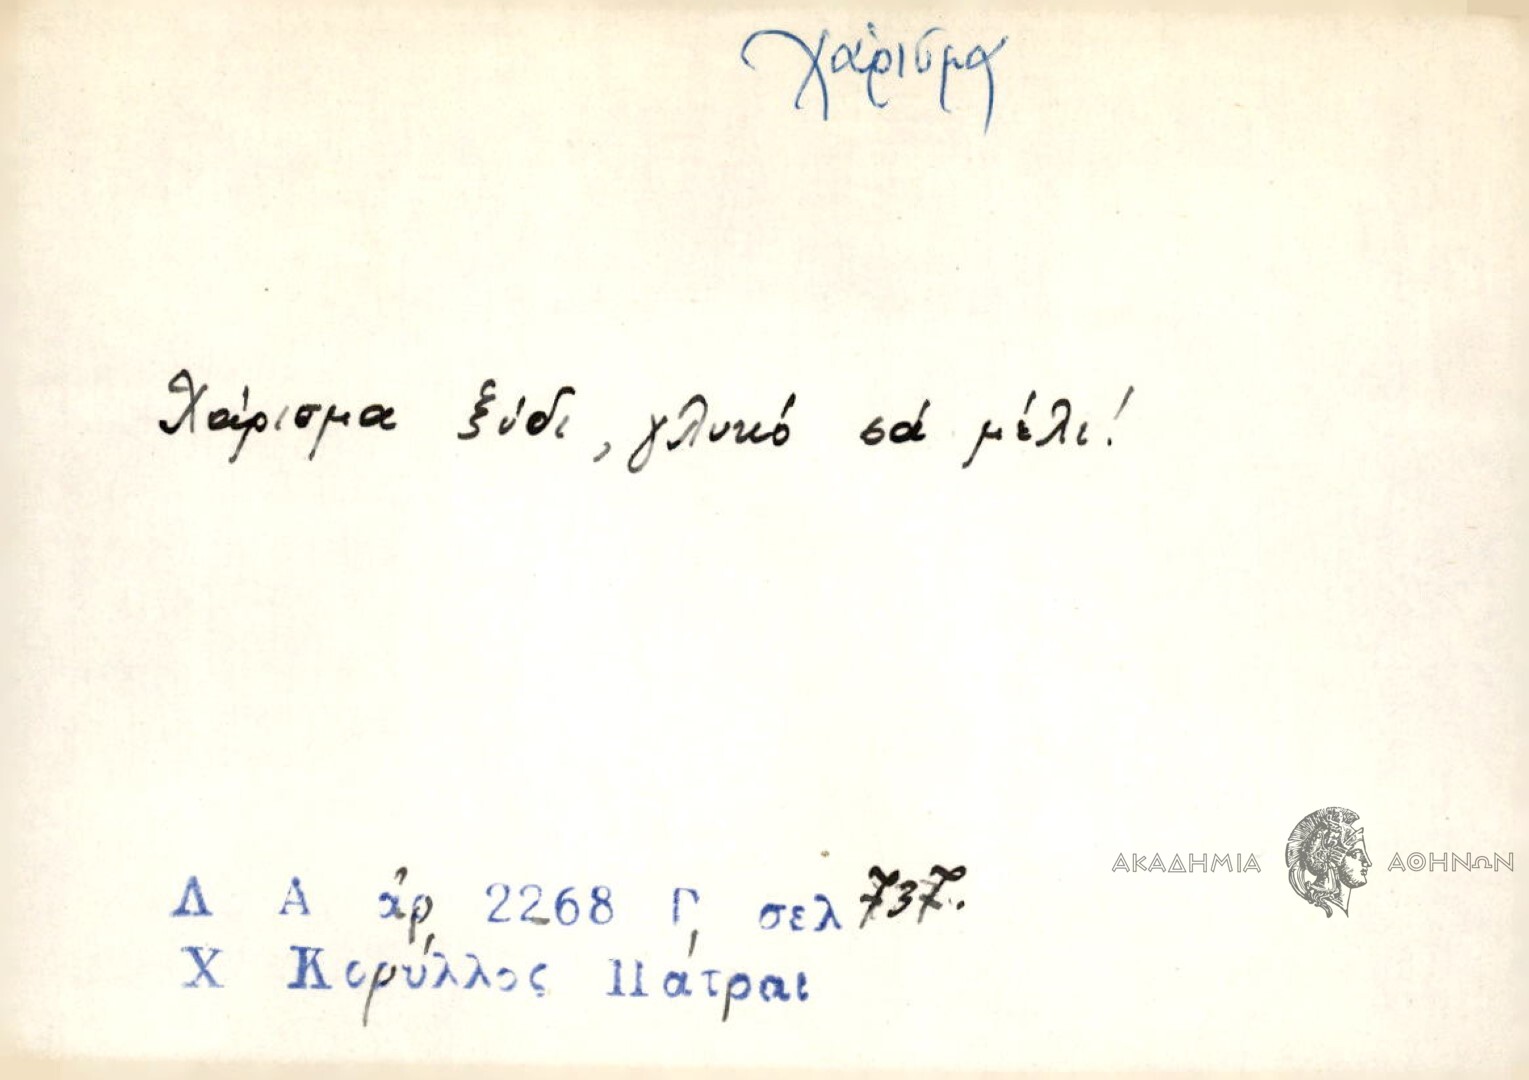 χάρισμα
Χάρισμα ξύδι, γλυκό σά μέλι!
ΑΚΑΔΗΜΙΑ ΑΘΗΝΩΝ
Λ Α ἀρ 2268 Γ, σελ 737.
Χ Κορύλλος Πάτραι